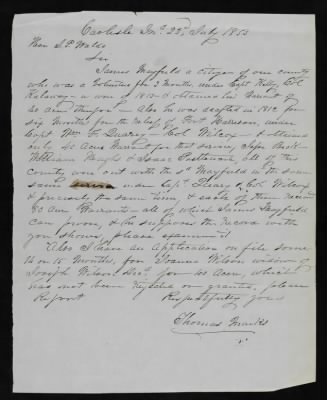 Carlisle Ia. 25th July 1853
Hon L P Waldo
Sir
James Mayfield a citizen of our county
who was a Volunteer for 3 months, under Capt Kelly, Col
war of 1812 & obtained his Warrant of
40 acres thereon — Also he was drafted in 1812 for
six months for the relief of Fort Harrison, under
Capt Wm — Col Wilcox — & obtained
only 40 Acres Warrant for that service,
William & Isaac all of this
County were out with the sd Mayfield in the same
same service under Capt & Col Wilcox
& precisely the same time, & each of them received
80 Acre Warrants — all of which James Mayfield
can prove, & he supposes the Record with
you shows, please examine
Also I have an Application on file some
14 or 15 months, for Joanna Wilson widow of
Joseph Wilson Decd. for 40 Acres, which
has not been rejected or granted, please
Report Respectfully yours
Thomas Marks